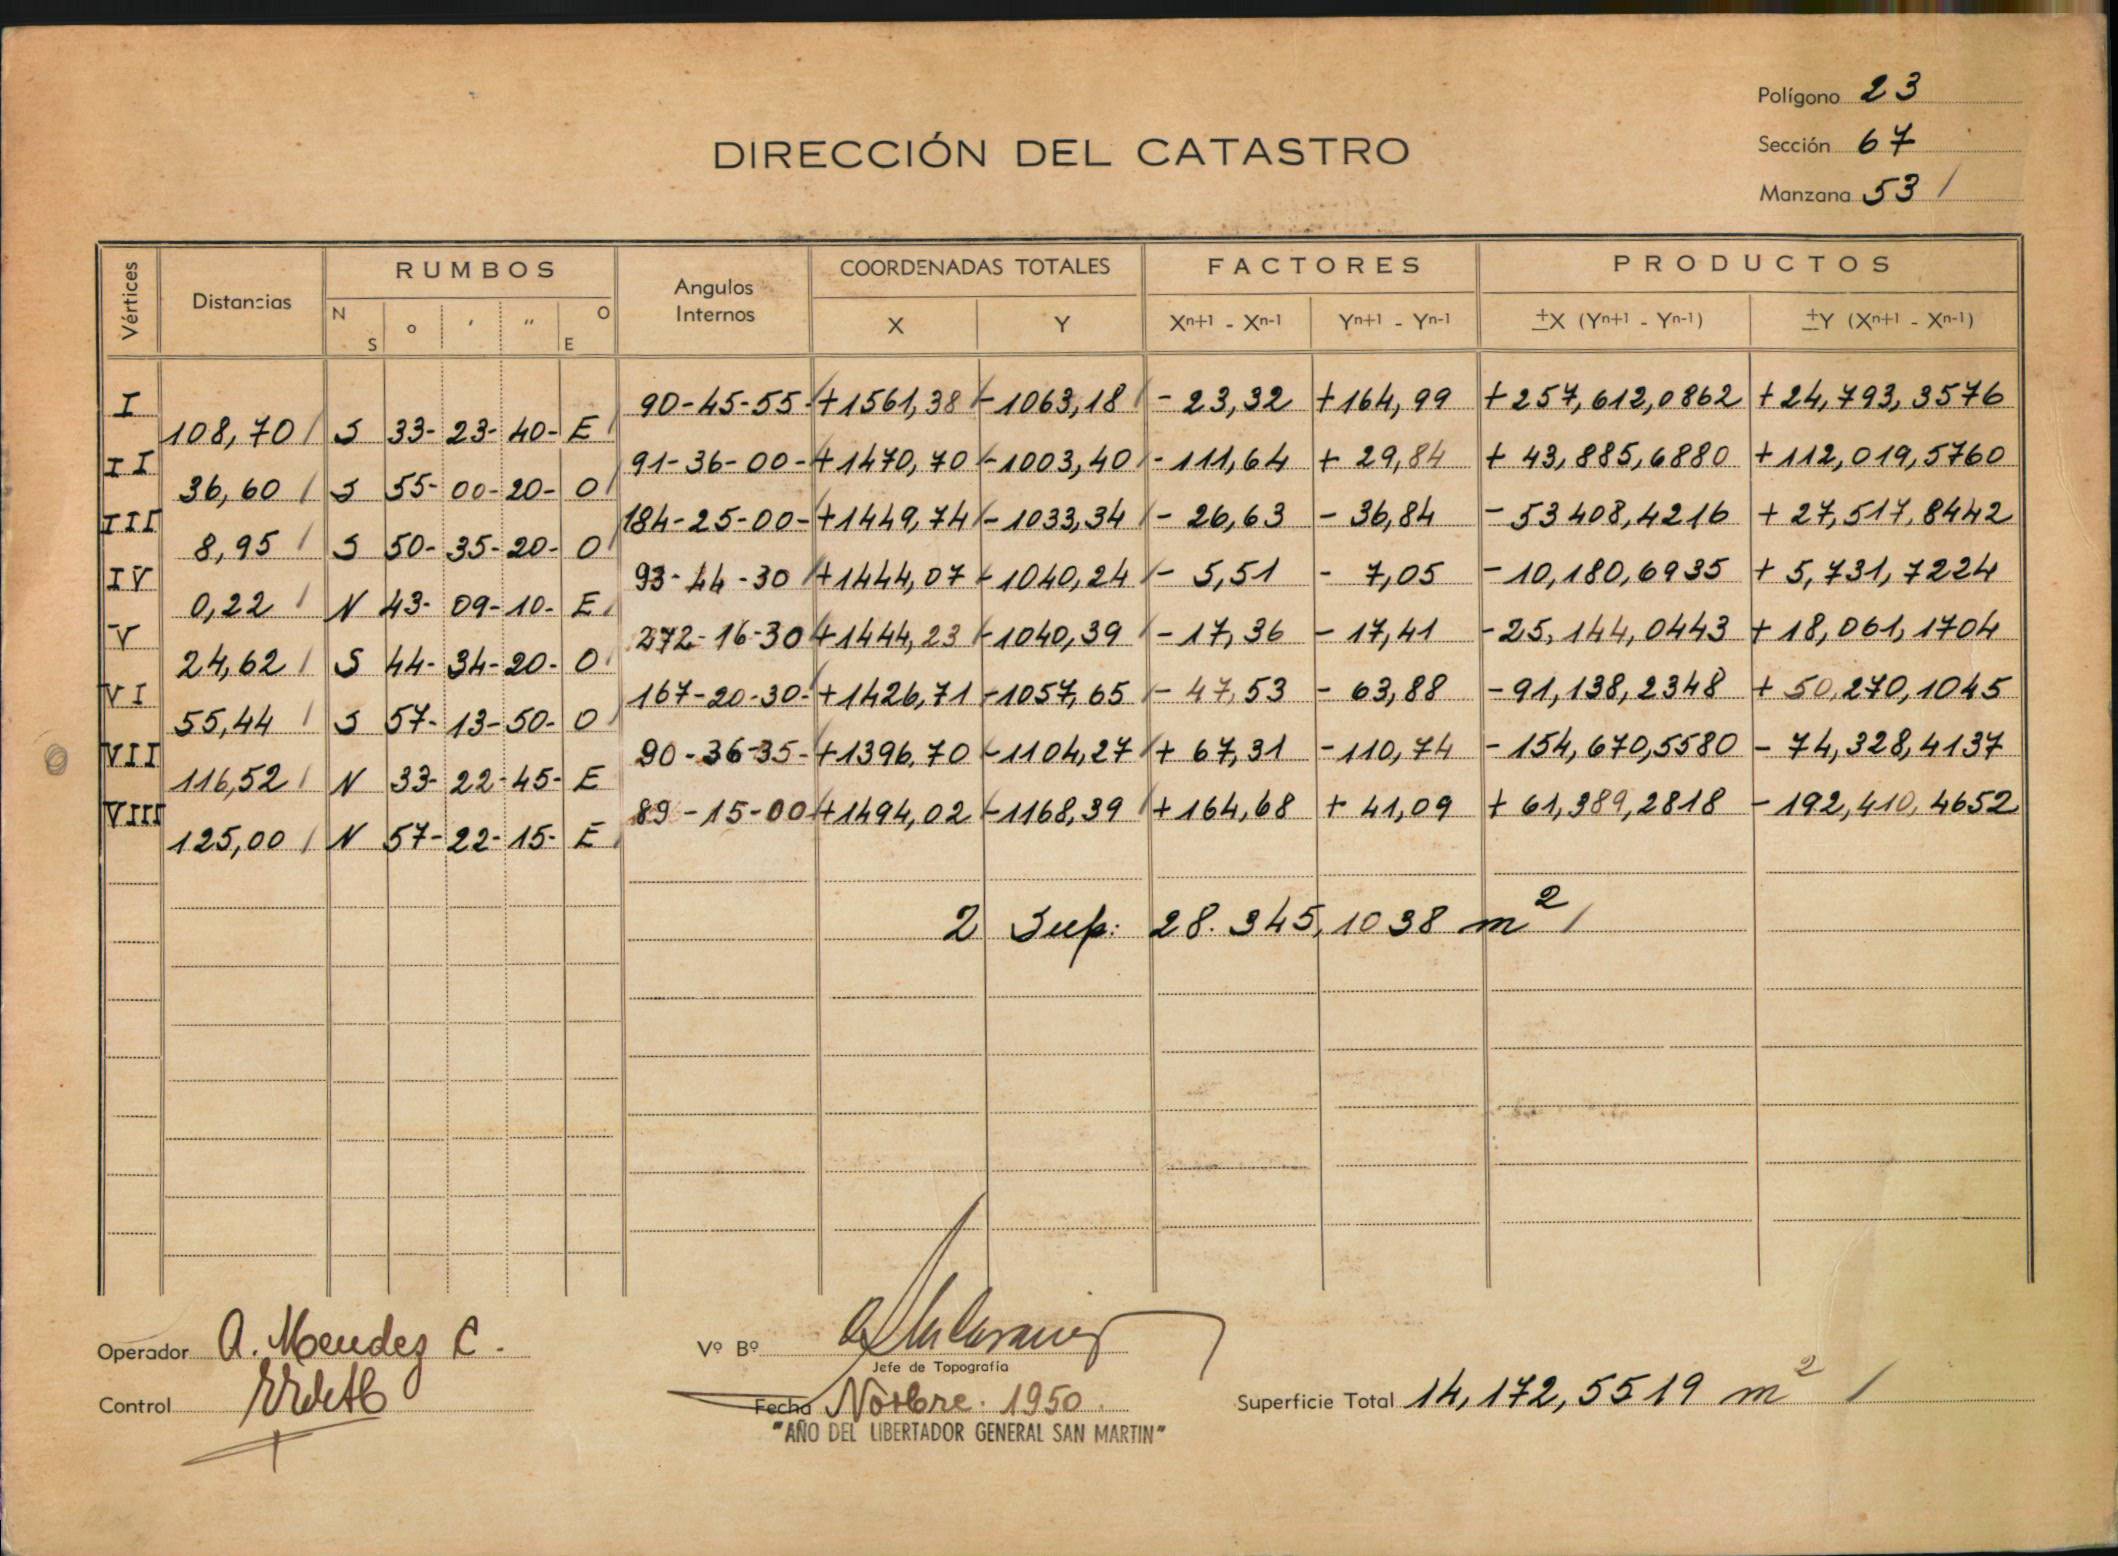 Polígono 23
Sección 67
Manzana 53 /
DIRECCIÓN DEL CATASTRO
Vértices Distancias RUMBOS Angulos Internos COORDENADAS TOTALES FACTORES PRODUCTOS
N S o ' " O E X Y Xn+1 - Xn-1 Yn+1 - Yn-1 ±X (Yn+1 - Yn-1) ±Y (Xn+1 - Xn-1)
I 90-45-55- +1561,38 -1063,18 - 23,32 +164,99 +257,612,0862 +24,793,3576
108,70 / S 33- 23- 40- E
II 91-36-00- +1470,70 -1003,40 -111,64 + 29,84 + 43,885,6880 +112,019,5760
36,60 / S 55- 00- 20- O
III 184-25-00- +1449,74 -1033,34 - 26,63 - 36,84 - 53 408,4216 + 27,517,8442
8,95 / S 50- 35- 20- O
IV 93-44-30 +1444,07 -1040,24 - 5,51 - 7,05 -10,180,6935 + 5,731,7224
0,22 / N 43- 09- 10- E
V 272-16-30 +1444,23 -1040,39 - 17,36 - 17,41 -25,144,0443 + 18,061,1704
24,62 / S 44- 34- 20- O
VI 167-20-30- +1426,71 -1057,65 - 47,53 - 63,88 -91,138,2348 + 50,270,1045
55,44 / S 57- 13- 50- O
VII 90-36-35- +1396,70 -1104,27 + 67,31 -110,74 -154,670,5580 - 74,328,4137
116,52 / N 33- 22- 45- E
VIII 89-15-00 +1494,02 -1168,39 +164,68 + 41,09 + 61,389,2818 - 192,410,4652
125,00 / N 57- 22- 15- E
2 Sup: 28.345,1038 m2 /
Operador A. Mendez C.
Vº Bº
Jefe de Topografía
Control
Fecha Novbre. 1950.
Superficie Total 14,172,5519 m2 /
"AÑO DEL LIBERTADOR GENERAL SAN MARTIN"